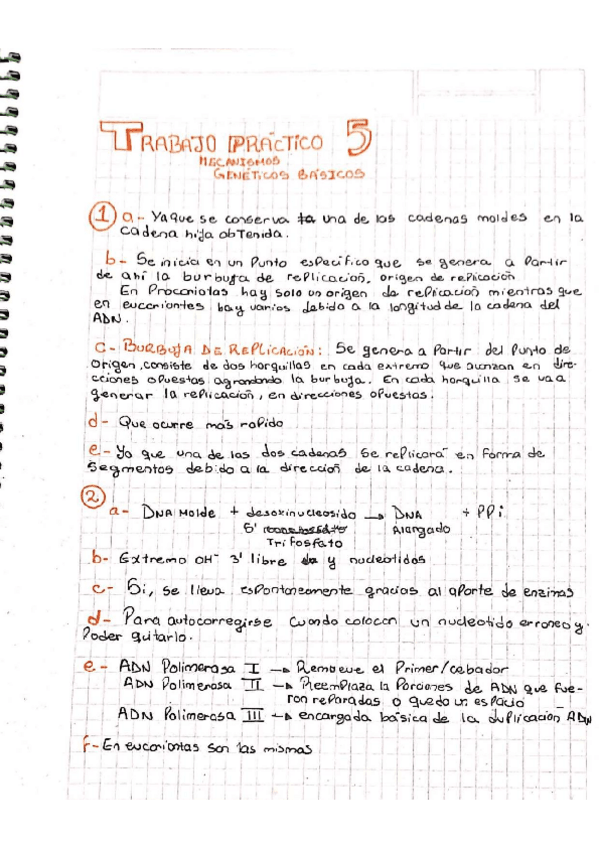 TRABAJO PRÁCTICO 5
MECANISMOS
GENÉTICOS BÁSICOS
1 a- Ya que se conserva una de las cadenas moldes en la
cadena hija obtenida.
b- Se inicia en un Punto especifico que se genera a Partir
de ahí la burbuja de replicación, origen de replicación
En Procariotas hay solo un origen de replicación mientras que
en eucariontes hay varios debido a la longitud de la cadena del
ADN.
C- BURBUJA DE REPLICACIÓN: Se genera a Partir del Punto de
origen, consiste de dos horquillas en cada extremo que avanzan en dire-
cciones opuestas agrandando la burbuja. En cada horquilla se va a
generar la replicación, en direcciones opuestas.
d- Que ocurre más rapido
e- Ya que una de las dos cadenas se replicará en forma de
segmentos debido a la dirección de la cadena.
2
a- DNA Molde + desoxinucleosido → DNA + PPi
5' Alargado
Trifosfato
b- Extremo OH- 3' libre y nucleotidos
c- Si, se lleva espontaneamente gracias al aporte de enzimas
d- Para autocorregirse cuando colocan un nucleotido erroneo y
Poder quitarlo.
e- ADN Polimerasa I → Remueve el Primer/cebador
ADN Polimerasa II → Reemplaza la Porciones de ADN que fue-
ron reparadas o queda un espacio
ADN Polimerasa III → encargada básica de la duplicación ADN
f- En eucariontas son las mismas